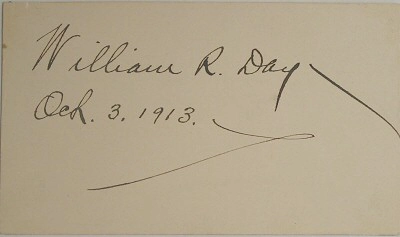 William R. Day
Oct. 3. 1913.